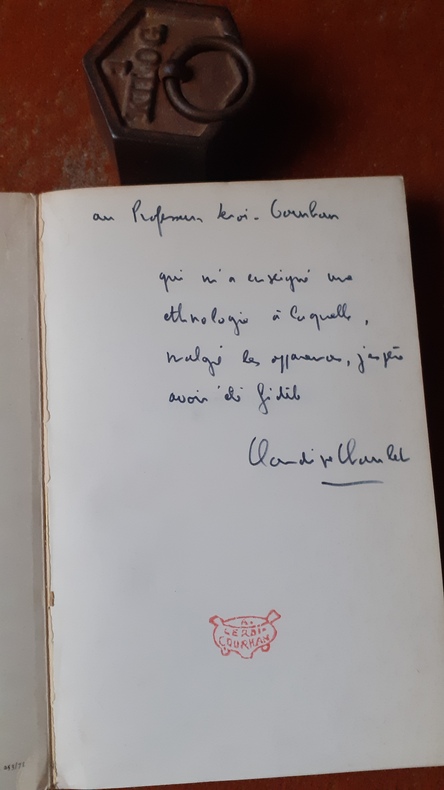 au Professeur Leroi-Gourhan
qui m'a enseigné une
ethnologie à laquelle,
malgré les apparences, j'espère
avoir été fidèle
Claudine Chaulet
A.
LEROI-
GOURHAN